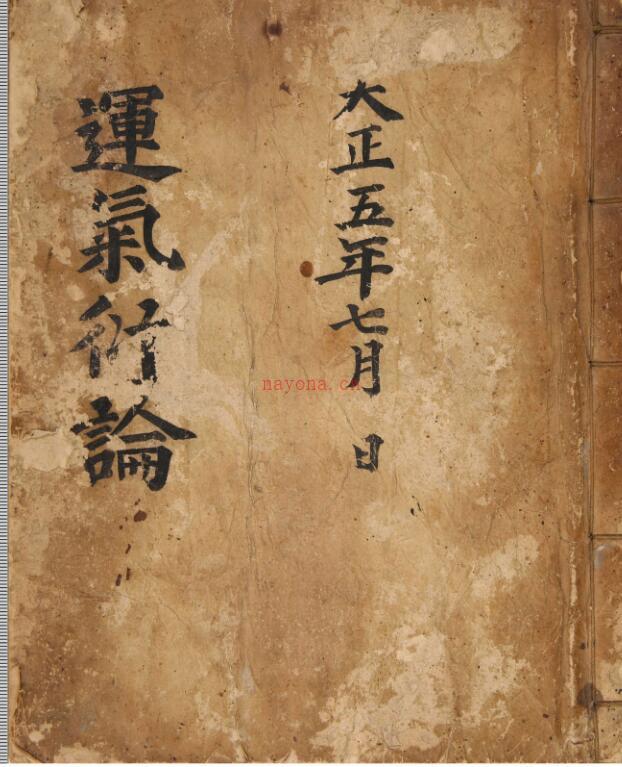 大正五年七月 日
運氣衍論
nayona.cn